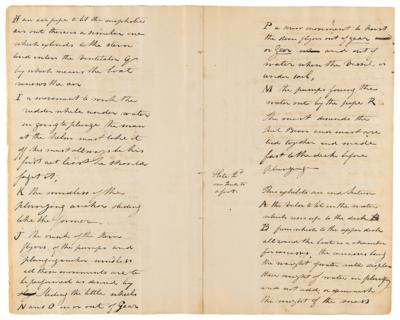 H an air pipe to let the mephitic
air out there is a similar one
which extends to the stern
and enters the Ventilator G
by which means the boat
renews the air
I a movement to work the
rudder while under water
on going to plunge the man
at the helm must take it
off this must always be his
first act least he should
forget it,
K the windlass of the
plunging anchor sliding
like the former
J the crank of the stern
flyers, of the pumps and
plunging anchor windlass
all those movements are to
be performed as desired by
sliding the little wheels
N and O in or out of Gear
Plate 2d
one Inch to
a foot.
P a movement to hoist
the stern flyers out of gear
or Gear and out of
water when the Vessel is
under sail,
M the pumps forcing the
water out by the pipe R
The mast descends the
Jack Boom and mast are
tied together and made
fast to the deck before
plunging
A the valve to let in the water
which rises up to the deck B
B from which to the upper deck
all round the boat is a chamber
the weight of water will displace
their weight of water in plunging
and not add or diminish
the weight of the mass